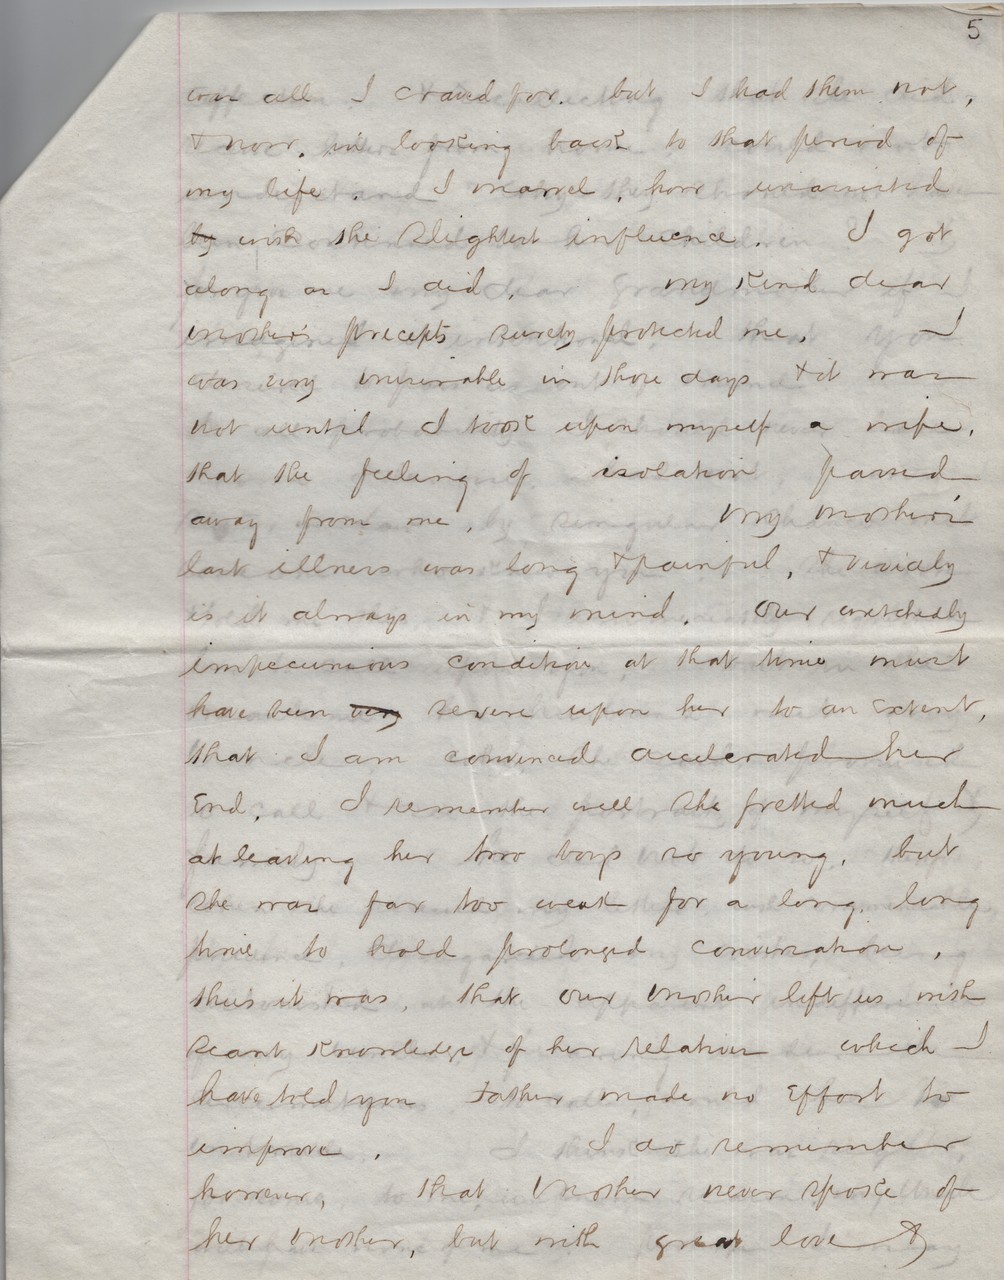 5
was all I craved for. but I had them not,
& now, in looking back to that period of
my life. I marvel, how unassisted
by with the slightest influence. I got
along as I did. my kind dear
mother's precepts surely protected me. I
was very miserable in those days & it was
not until I took upon myself a wife,
that the feeling of isolation passed
away from me. My mother's
last illness was long & painful, & vividly
is it always in my mind. Our wretchedly
impecunious condition at that time must
have been very severe upon her to an Extent,
that I am convinced accelerated her
End. I remember well she fretted much
at leaving her two boys so young, but
she was far too weak for a long, long
time to hold prolonged conversation,
thus it was, that our Mother left us with
scant knowledge of her relation which I
have told you Father made no Effort to
improve. I do remember
however, that Mother never spoke of
her Mother, but with great love &